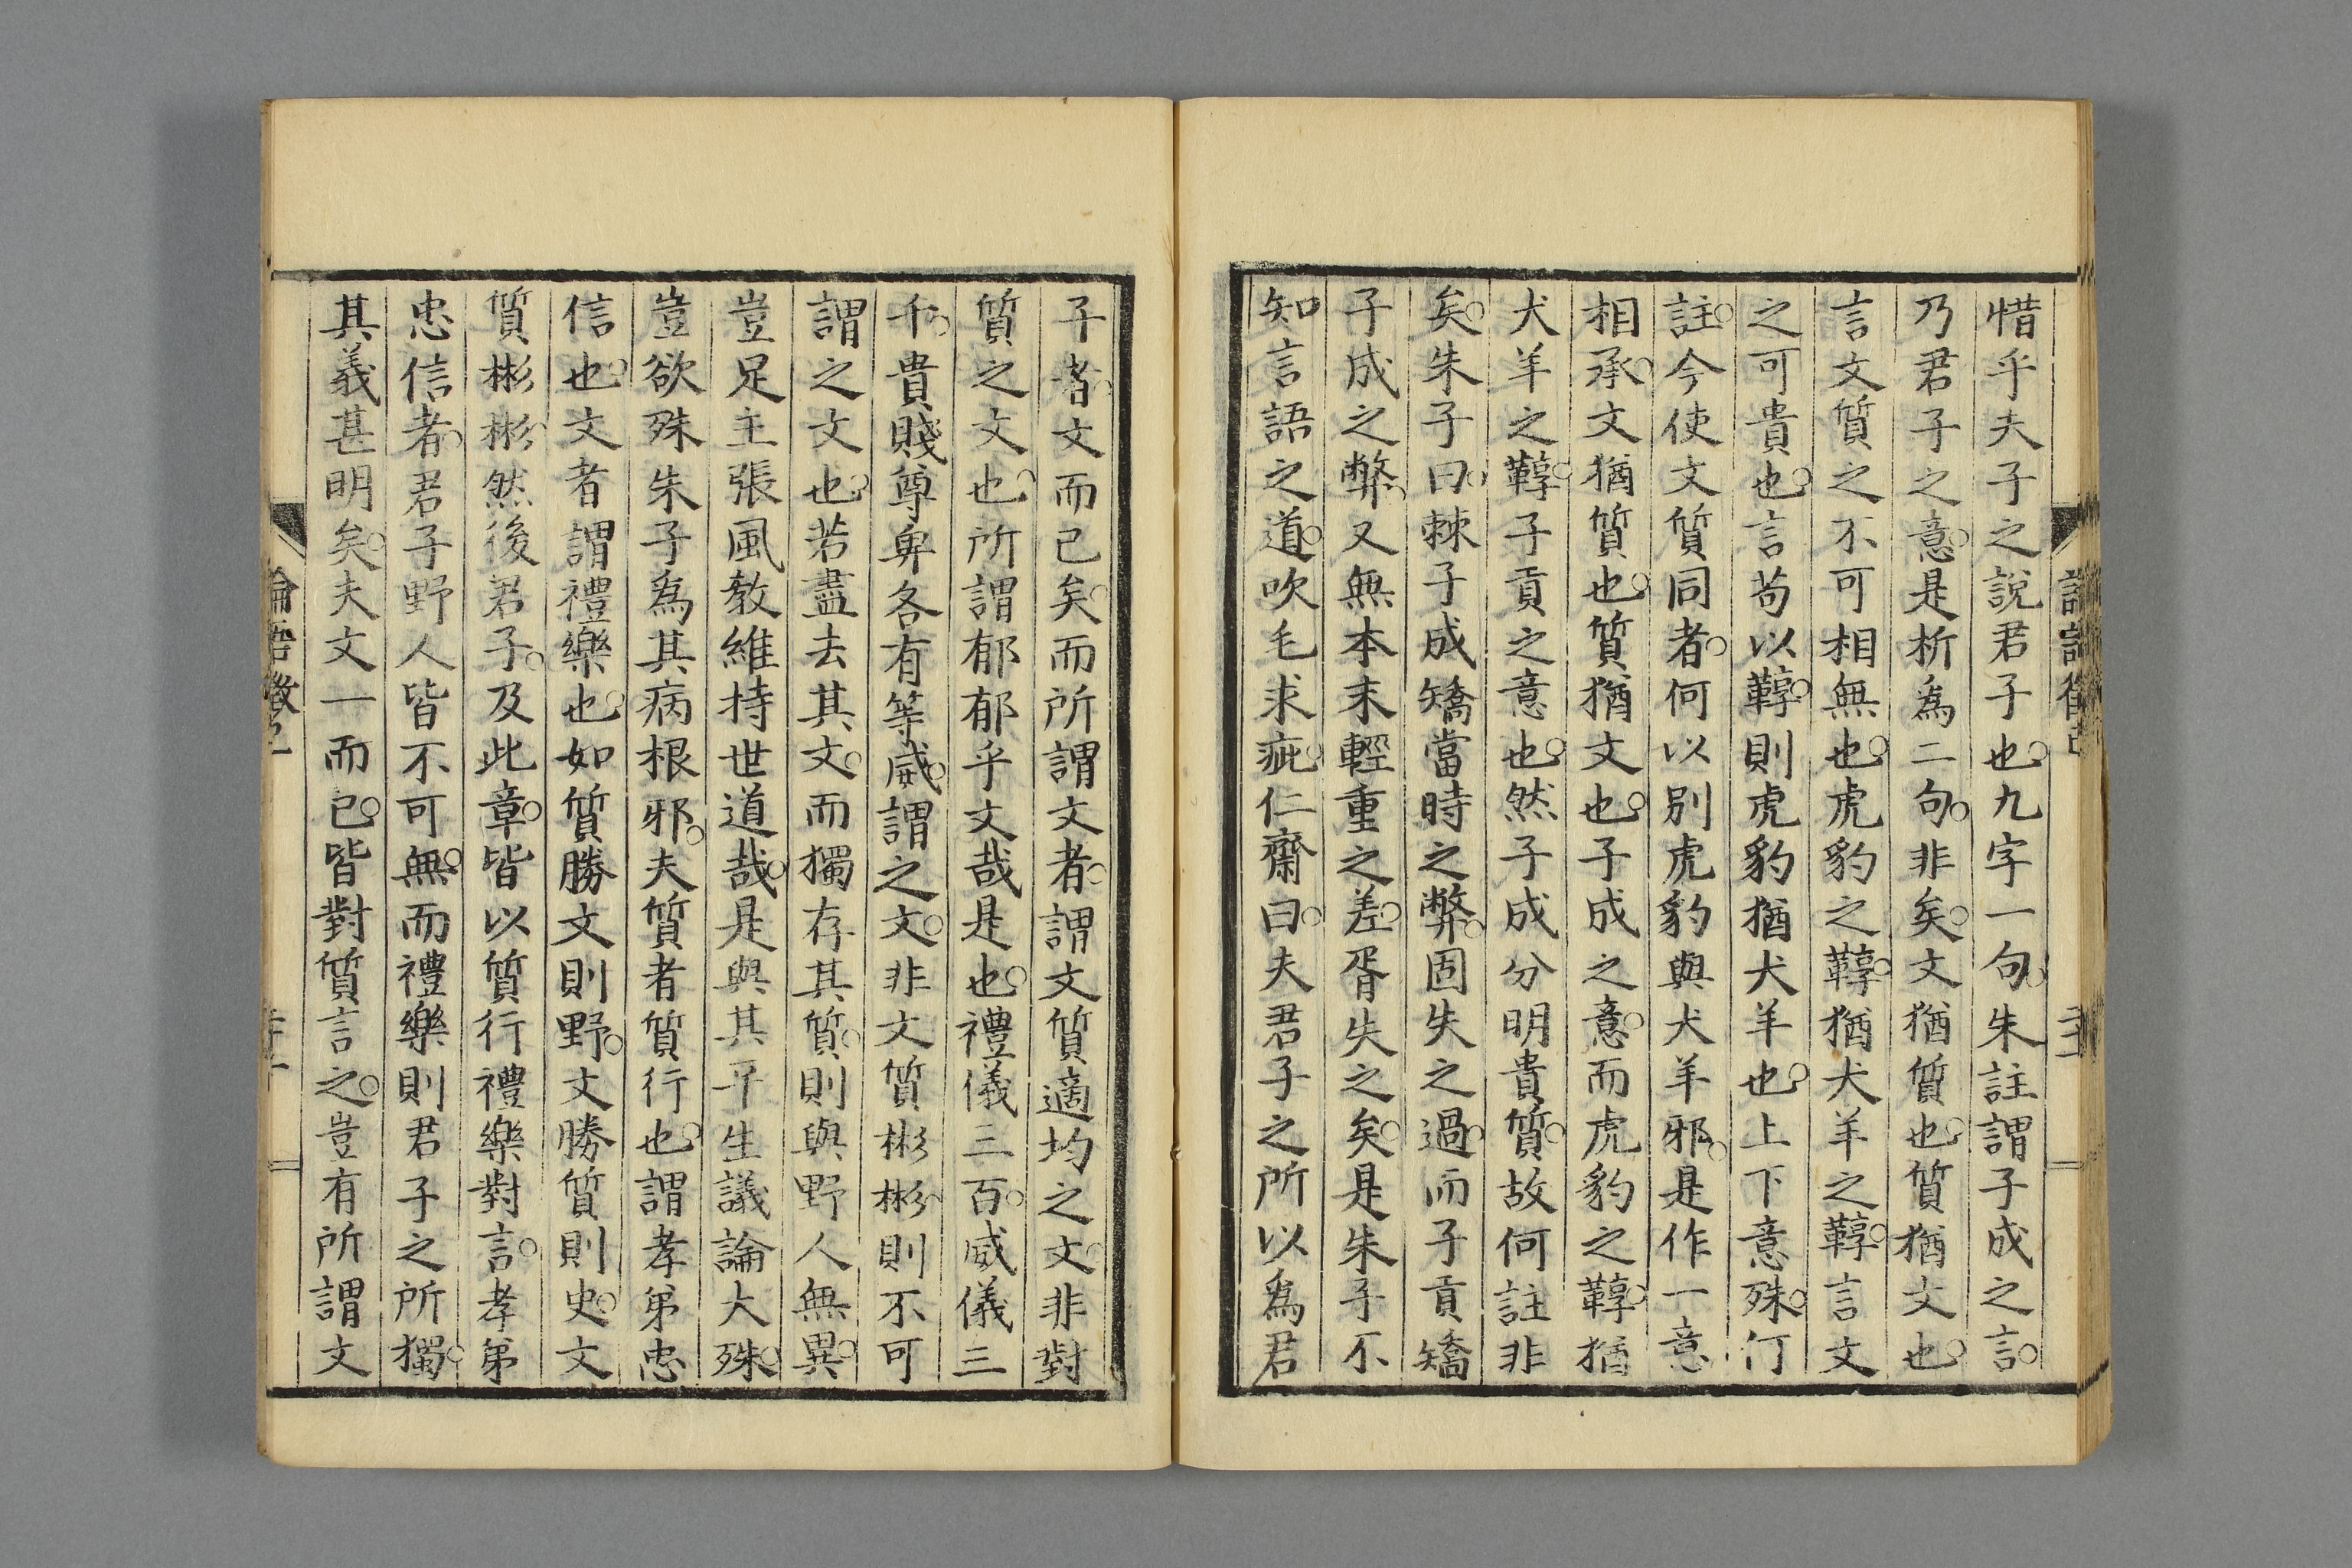 惜乎夫子之說君子也九字一句朱註謂子成之言
乃君子之意是析為二句非矣文猶質也質猶文也
言文質之不可相無也虎豹之鞟猶犬羊之鞟言文
之可貴也言苟以鞟則虎豹猶犬羊也上下意殊何
註今使文質同者何以別虎豹與犬羊邪是作一意
相承文猶質也質猶文也子成之意而虎豹之鞟猶
犬羊之鞟子貢之意也然子成分明貴質故何註非
矣朱子曰棘子成矯當時之弊固失之過而子貢矯
子成之弊又無本末輕重之差胥失之矣是朱子不
知言語之道吹毛求疵仁齋曰夫君子之所以為君
子者文而已矣而所謂文者謂文質適均之文非對
質之文也所謂郁郁乎文哉是也禮儀三百威儀三
千貴賤尊卑各有等威謂之文非文質彬彬則不可
謂之文也若盡去其文而獨存其質則與野人無異
豈足主張風教維持世道哉是與其平生議論大殊
豈欲殊朱子為其病根邪夫質者質行也謂孝弟忠
信也文者謂禮樂也如質勝文則野文勝質則史文
質彬彬然後君子及此章皆以質行禮樂對言孝弟
忠信者君子野人皆不可無而禮樂則君子之所獨
其義甚明矣夫文一而已皆對質言之豈有所謂文
論語徵